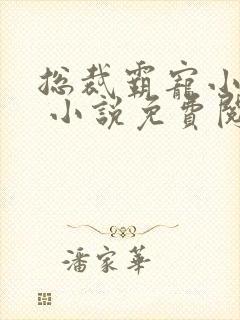 總裁霸寵小
小說免費閱
潘家華